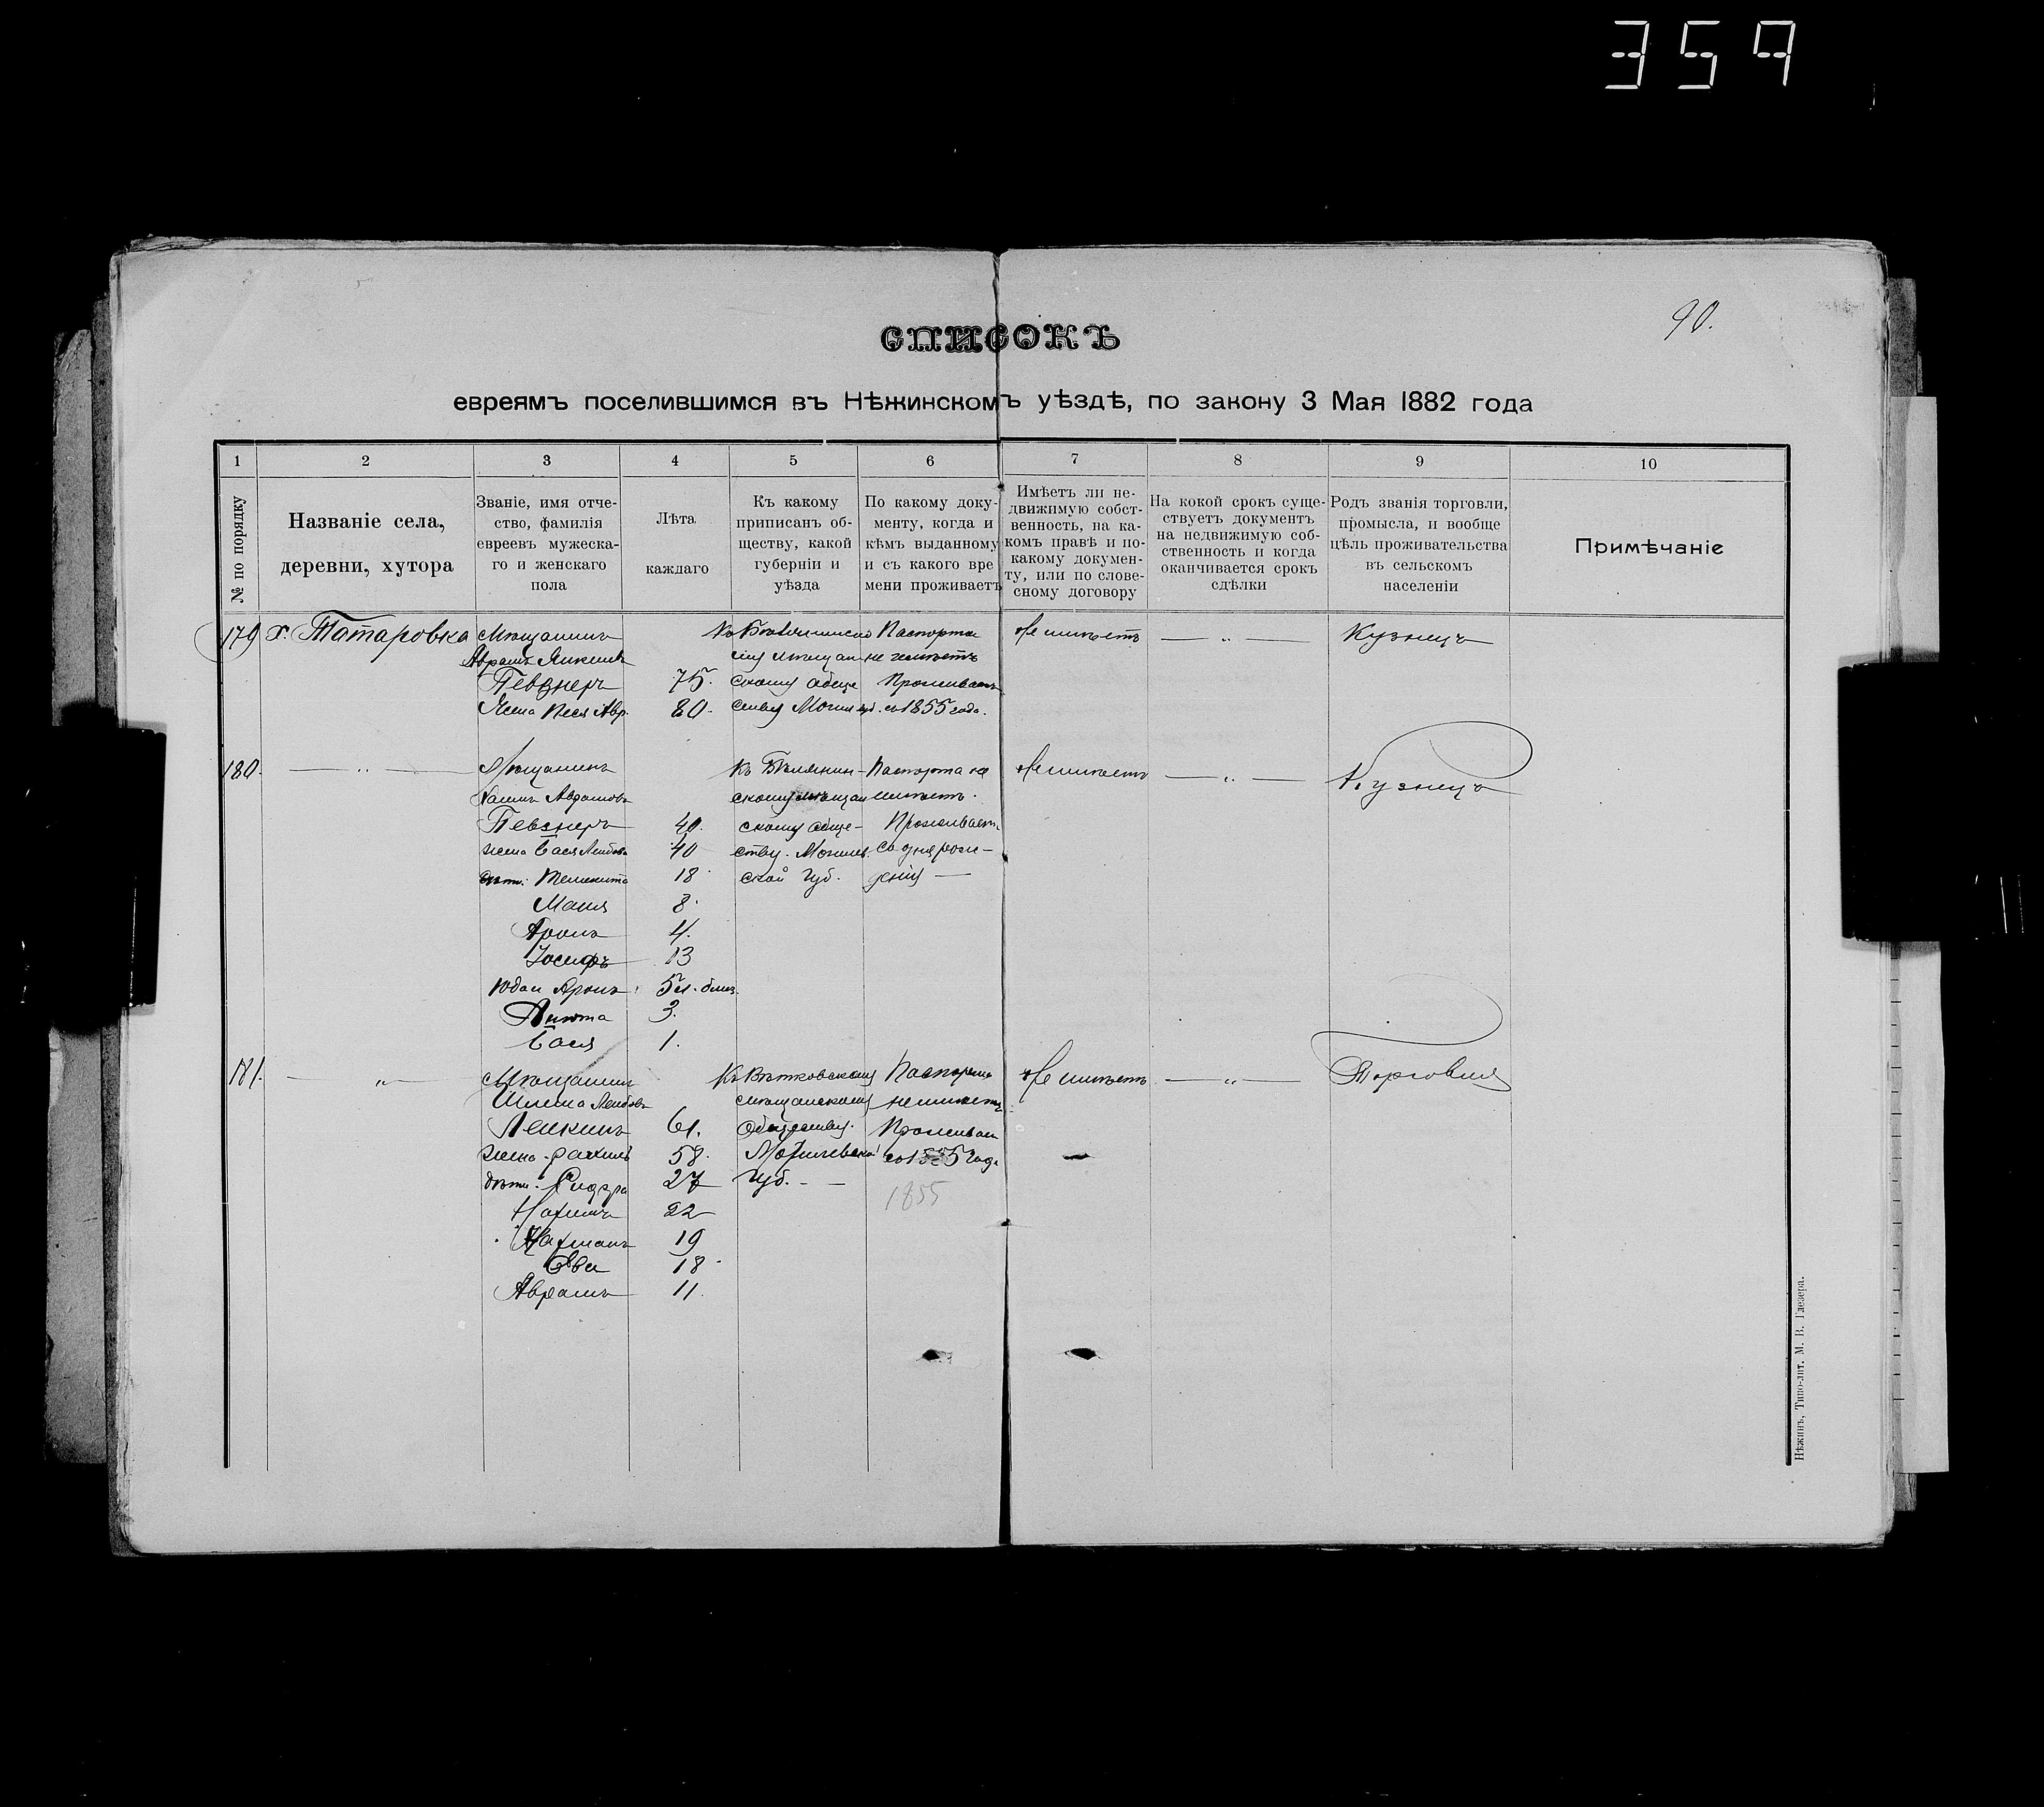 359
90.
СПИСОКЪ
евреямъ поселившимся въ Нѣжинскомъ уѣздѣ, по закону 3 Мая 1882 года
1
2
3
4
5
6
7
8
9
10
№ по порядку
Названіе села,
деревни, хутора
Званіе, имя отче-
ство, фамилія
евреевъ мужеска-
го и женскаго
пола
Лѣта
каждаго
Къ какому
приписанъ об-
ществу, какой
губерніи и
уѣзда
По какому доку-
менту, когда и
кѣмъ выданному
и съ какого вре
мени проживаетъ
Имѣетъ ли не-
движимую собст-
венность, на ка-
комъ правѣ и по-
какому докумен-
ту, или по слове-
сному договору
На кокой срокъ суще-
ствуетъ документъ
на недвижимую соб-
ственность и когда
оканчивается срокъ
сдѣлки
Родъ званія торговли,
промысла, и вообще
цѣль проживательства
въ сельскомъ
населеніи
Примѣчаніе
179
х. Татаровка
Мѣщанинъ
Аврамъ
Певзнеръ
Жена Песя Авр.
75.
80.
скому обще
ству Могил губ.
Паспорта
не имѣетъ
Проживаетъ
со 1855 года.
Не имѣетъ
— „ —
Кузнецъ
180.
— „ —
Мѣщанинъ
Хаимъ Аврамовъ
Певзнеръ
жена Бася Лейбова
дѣти:
Маня
Аронъ
Іосифъ
Юдаи Аронъ
Анюта
Бася
40.
40
18
8.
4.
13
5 л. близ.
3.
1.
Къ Бѣлынич-
скому мѣщан
скому обще-
ству. Могилев.
ской Губ.
Паспорта не
имѣетъ.
Проживаетъ
со дня рож-
денія —
Не имѣетъ
— „ —
Кузнецъ
181.
— „ —
Мѣщанинъ
Шлема Лейбовъ
Лейкинъ
жена - Рахиль
дѣти -
Нахимъ
Нахманъ
Ева
Аврамъ
61.
58.
27
22
19
18
11.
Къ Вѣтковскому
мѣщанскому
Обществу.
Могилевской
Губ. — —
Паспорта
не имѣетъ
Проживает
со 1855 года
1855
Не имѣетъ
— „ —
Торговля
Нѣжинъ, Типо-лит. М. В. Глезера.